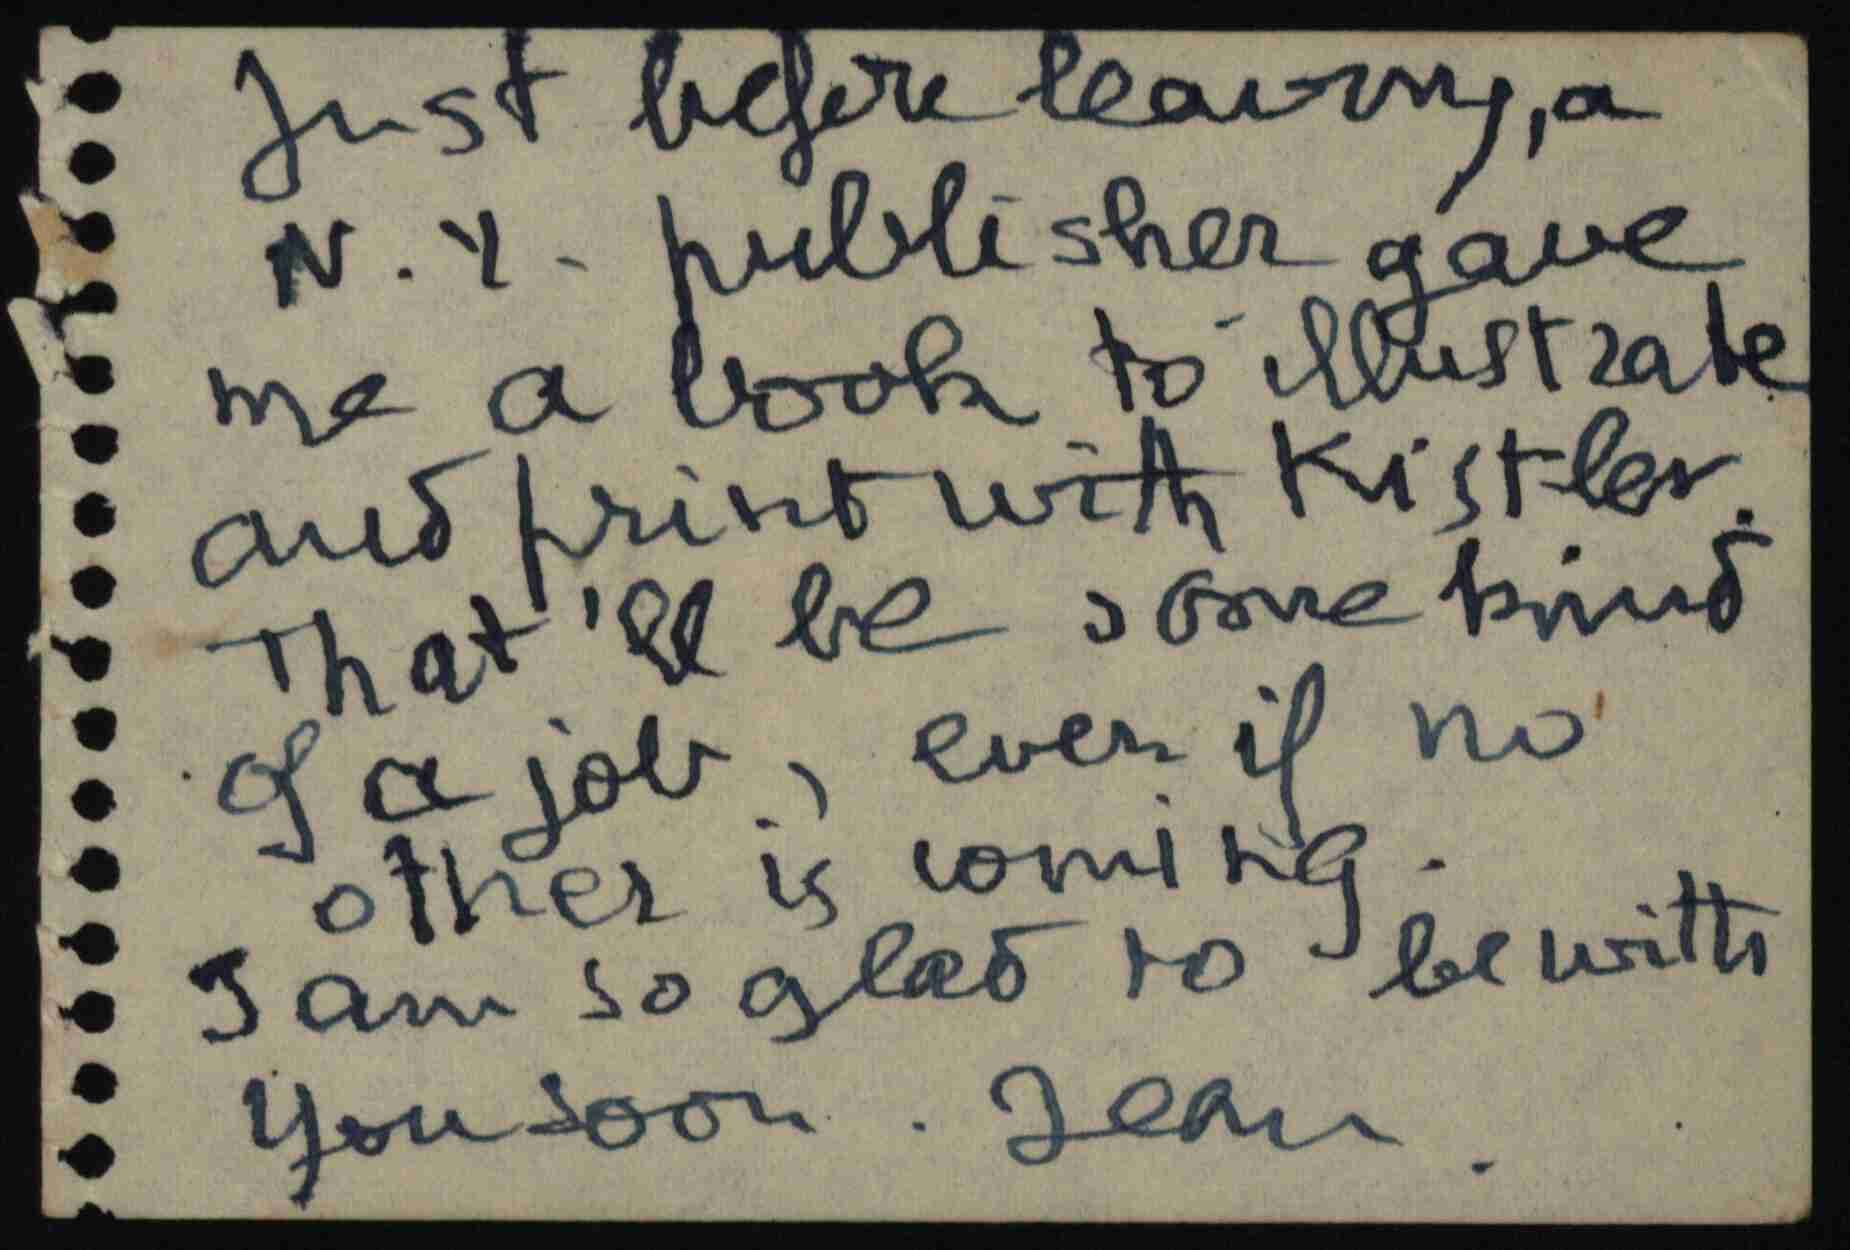 Just before leaving, a
N.Y. publisher gave
me a book to illustrate
and print with Kistler.
That'll be some kind
of a job, even if no
other is coming.
I am so glad to be with
you soon. Jean.